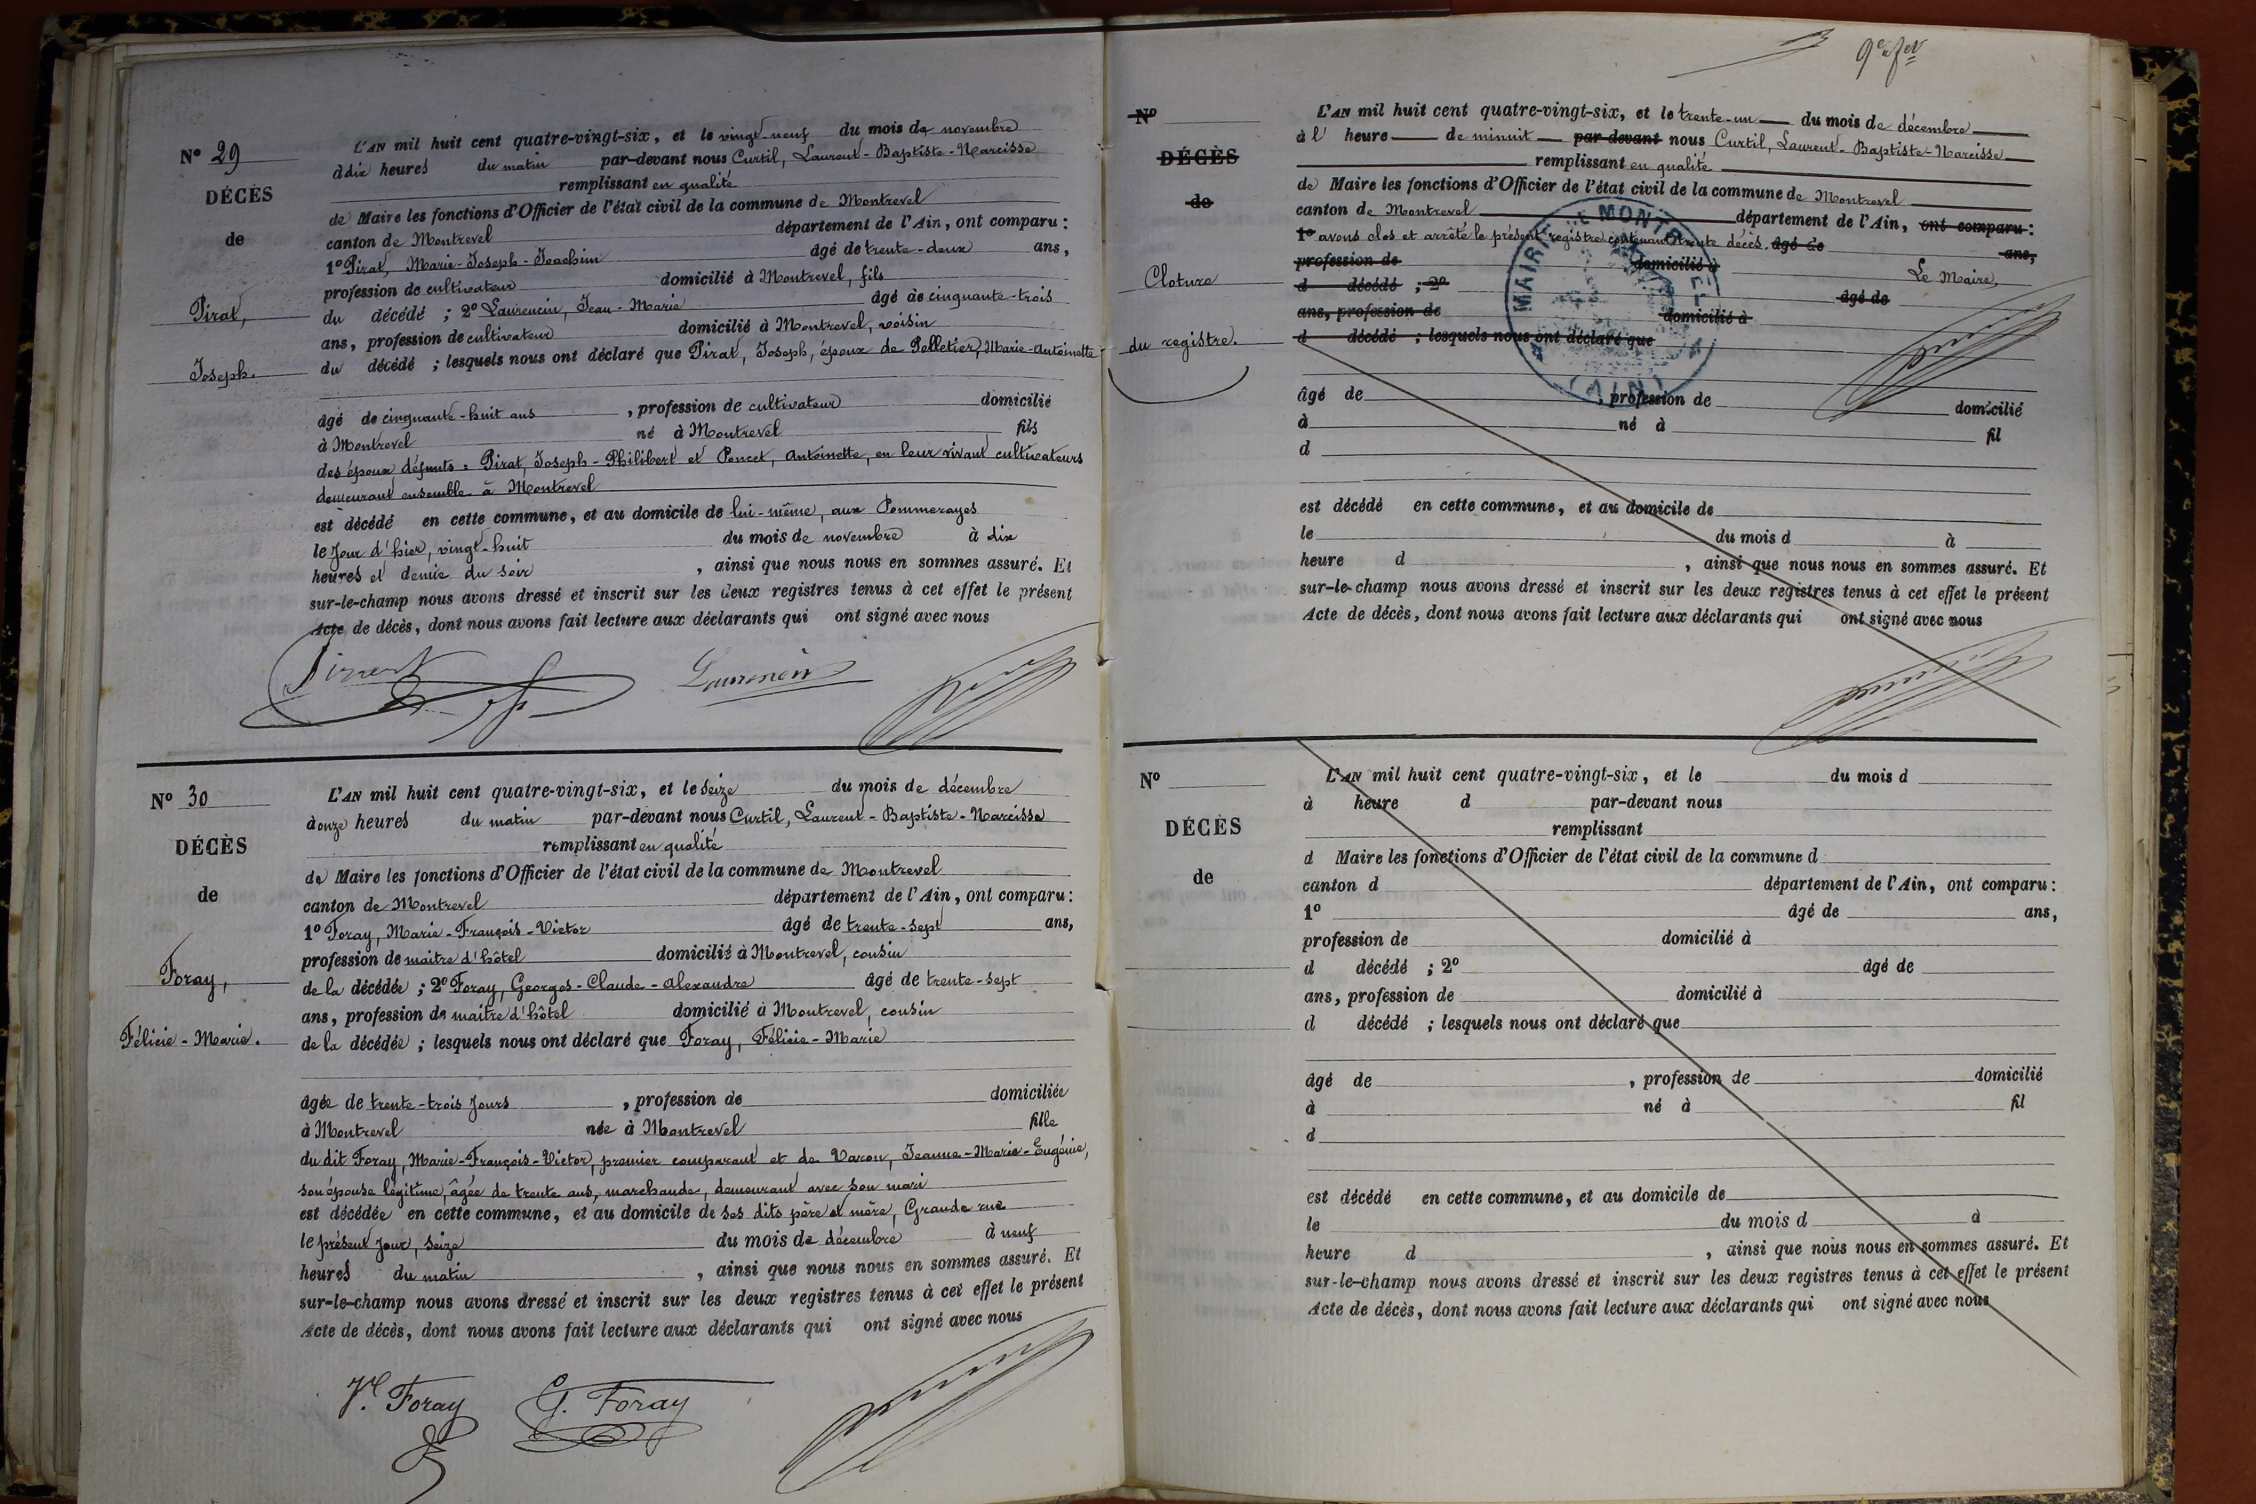 Nº 29
DÉCÈS
de
Pirat,
Joseph.
L'AN mil huit cent quatre-vingt-six, et le vingt-neuf du mois de novembre
à dix heures du matin par-devant nous Curtil, Laurent-Baptiste-Narcisse
remplissant en qualité
de Maire les fonctions d'Officier de l'état civil de la commune de Montrevel
canton de Montrevel département de l'Ain, ont comparu :
1º Pirat, Marie-Joseph-Joachim âgé de trente-deux ans,
profession de cultivateur domicilié à Montrevel, fils
du décédé ; 2º Laurencin, Jean-Marie âgé de cinquante-trois
ans, profession de cultivateur domicilié à Montrevel, voisin
du décédé ; lesquels nous ont déclaré que Pirat, Joseph, époux de Pelletier, Marie-Antoinette
âgé de cinquante-huit ans , profession de cultivateur domicilié
à Montrevel né à Montrevel fils
des époux défunts : Pirat, Joseph-Philibert et Poncet, Antoinette, en leur vivant cultivateurs
demeurant ensemble à Montrevel
est décédé en cette commune, et au domicile de lui-même, aux Pommerayes
le Jour d'hier, vingt-huit du mois de novembre à dix
heures et demie du soir , ainsi que nous nous en sommes assuré. Et
sur-le-champ nous avons dressé et inscrit sur les deux registres tenus à cet effet le présent
Acte de décès, dont nous avons fait lecture aux déclarants qui ont signé avec nous
Laurencin
Nº 30
DÉCÈS
de
Foray,
Félicie-Marie.
L'AN mil huit cent quatre-vingt-six, et le seize du mois de décembre
à onze heures du matin par-devant nous Curtil, Laurent-Baptiste-Narcisse
remplissant en qualité
de Maire les fonctions d'Officier de l'état civil de la commune de Montrevel
canton de Montrevel département de l'Ain, ont comparu :
1º Foray, Marie-François-Victor âgé de trente-sept ans,
profession de maître d'hôtel domicilié à Montrevel, cousin
de la décédée ; 2º Foray, Georges-Claude-Alexandre âgé de trente-sept
ans, profession de maître d'hôtel domicilié à Montrevel, cousin
de la décédée ; lesquels nous ont déclaré que Foray, Félicie-Marie
âgée de trente-trois Jours , profession de domiciliée
à Montrevel née à Montrevel fille
du dit Foray, Marie-François-Victor, premier comparant et de Varon, Jeanne-Marie-Eugénie,
son épouse légitime, âgée de trente ans, marchande, demeurant avec son mari
est décédée en cette commune, et au domicile de ses dits père et mère, Grande rue
le présent Jour, seize du mois de décembre à neuf
heures du matin , ainsi que nous nous en sommes assuré. Et
sur-le-champ nous avons dressé et inscrit sur les deux registres tenus à cet effet le présent
Acte de décès, dont nous avons fait lecture aux déclarants qui ont signé avec nous
Foray G. Foray
Nº
DÉCÈS
de
Cloture
du registre.
L'AN mil huit cent quatre-vingt-six, et le trente-un du mois de décembre
à l' heure de minuit par-devant nous Curtil, Laurent-Baptiste-Narcisse
remplissant en qualité
de Maire les fonctions d'Officier de l'état civil de la commune de Montrevel
canton de Montrevel département de l'Ain, ont comparu :
1º avons clos et arrêté le présent registre contenant trente décès. âgé de ans,
profession de domicilié à Le Maire,
d décédé ; 2º âgé de
ans, profession de domicilié à
d décédé ; lesquels nous ont déclaré que
MAIRIE DE MONTREVEL
(AIN)
âgé de , profession de domicilié
à né à fil
d
est décédé en cette commune, et au domicile de
le du mois d à
heure d , ainsi que nous nous en sommes assuré. Et
sur-le-champ nous avons dressé et inscrit sur les deux registres tenus à cet effet le présent
Acte de décès, dont nous avons fait lecture aux déclarants qui ont signé avec nous
Nº
DÉCÈS
de
L'AN mil huit cent quatre-vingt-six, et le du mois d
à heure d par-devant nous
remplissant
d Maire les fonctions d'Officier de l'état civil de la commune d
canton d département de l'Ain, ont comparu :
1º âgé de ans,
profession de domicilié à
d décédé ; 2º âgé de
ans, profession de domicilié à
d décédé ; lesquels nous ont déclaré que
âgé de , profession de domicilié
à né à fil
d
est décédé en cette commune, et au domicile de
le du mois d à
heure d , ainsi que nous nous en sommes assuré. Et
sur-le-champ nous avons dressé et inscrit sur les deux registres tenus à cet effet le présent
Acte de décès, dont nous avons fait lecture aux déclarants qui ont signé avec nous